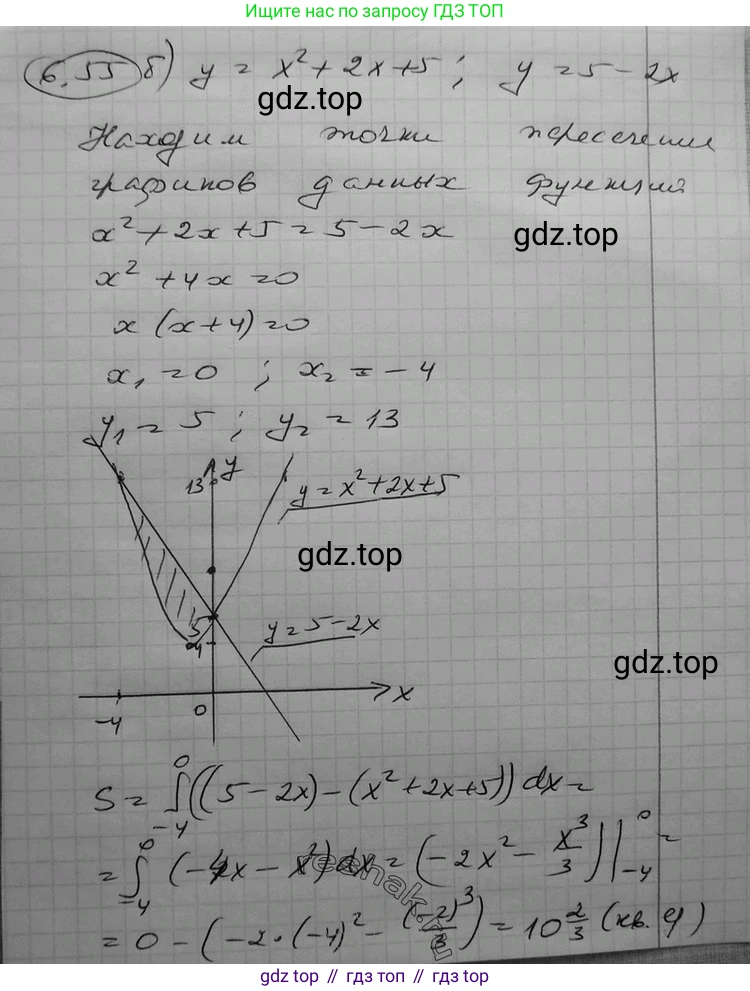 Ищите нас по запросу ГДЗ ТОП
6.55 б) y = x² + 2x + 5 ; y = 5 - 2x
gdz.top
Находим точки пересечения
графиков данных функций
x² + 2x + 5 = 5 - 2x
gdz.top
x² + 4x = 0
x (x + 4) = 0
x₁ = 0 ; x₂ = -4
y₁ = 5 ; y₂ = 13
13 y
y = x² + 2x + 5
gdz.top
5
y = 5 - 2x
4
gdz.top
-4 0 x
S = ∫₋₄⁰ ((5 - 2x) - (x² + 2x + 5)) dx =
= ∫₋₄⁰ (-4x - x²) dx = (-2x² - x³/3) |₋₄⁰ =
reshak.ru
= 0 - (-2 · (-4)² - (-2)³/3) = 10 2/3 (кв. ед)
gdz.top // гдз топ // gdz.top // гдз топ